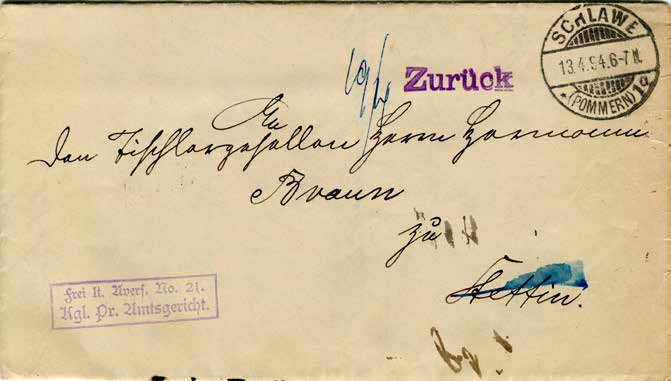 SCHLAWE
13.4.94.6-7N.
*(POMMERN)1a
Zurück
An
den Tischlergesellen Herrn Hermann
Braun
zu
Stettin.
Frei lt. Avers. No. 21.
Kgl. Pr. Amtsgericht.